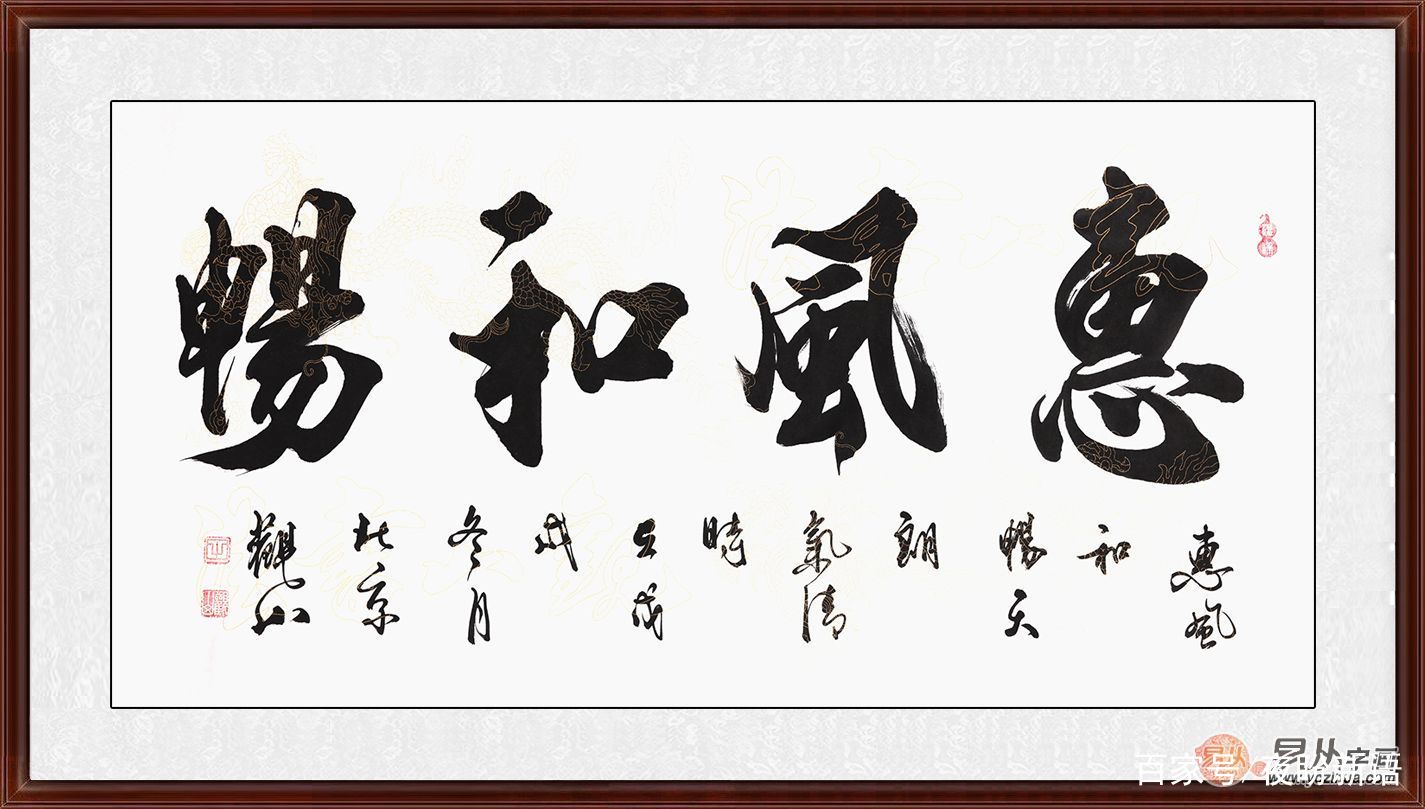 惠風和暢
惠風
和
暢天
朗
氣清
時
在戊
戌
冬月
北京
觀山
易从字画
百家号/
www.yczihua.com